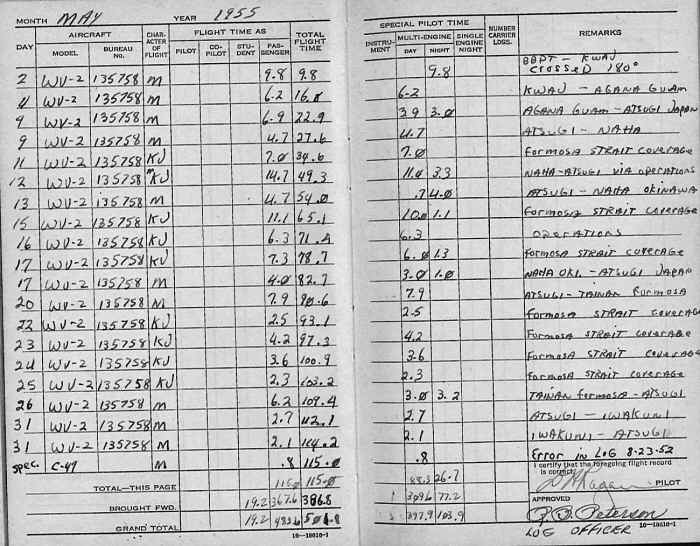 MONTH MAY YEAR 1955
DAY AIRCRAFT CHAR- ACTER OF FLIGHT FLIGHT TIME AS TOTAL FLIGHT TIME
MODEL BUREAU NO. PILOT CO- PILOT STU- DENT PAS- SENGER
2 WV-2 135758 M 9.8 9.8
4 WV-2 135758 M 6.2 16.0
9 WV-2 135758 M 6.9 22.9
9 WV-2 135758 M 4.7 27.6
11 WV-2 135758 KJ 7.0 34.6
12 WV-2 135758 KJ 14.7 49.3
13 WV-2 135758 M 4.7 54.0
15 WV-2 135758 KJ 11.1 65.1
16 WV-2 135758 KJ 6.3 71.4
17 WV-2 135758 KJ 7.3 78.7
17 WV-2 135758 M 4.0 82.7
20 WV-2 135758 M 7.9 90.6
22 WV-2 135758 KJ 2.5 93.1
23 WV-2 135758 KJ 4.2 97.3
24 WV-2 135758 KJ 3.6 100.9
25 WV-2 135758 KJ 2.3 103.2
26 WV-2 135758 M 6.2 109.4
31 WV-2 135758 M 2.7 112.1
31 WV-2 135758 M 2.1 114.2
SPEC. C-47 M .8 115.0
TOTAL—THIS PAGE 115.0 115.0
BROUGHT FWD. 19.2 367.6 386.8
GRAND TOTAL 19.2
16—18610-1
SPECIAL PILOT TIME NUMBER CARRIER LDGS. REMARKS
INSTRU- MENT MULTI-ENGINE SINGLE ENGINE NIGHT
DAY NIGHT
9.8 BBPT - KWAJ
CROSSED 180°
6.2 KWAJ - AGANA GUAM
3.9 3.0 AGANA GUAM - ATSUGI JAPAN
4.7 ATSUGI - NAHA
7.0 FORMOSA STRAIT COVERAGE
11.0 3.3 NAHA-ATSUGI VIA OPERATIONS
.7 4.0 ATSUGI - NAHA OKINAWA
10.0 1.1 FORMOSA STRAIT COVERAGE
6.3 OPERATIONS
6.0 1.3 FORMOSA STRAIT COVERAGE
3.0 1.0 NAHA OKI. - ATSUGI JAPAN
7.9 ATSUGI - TAINAN FORMOSA
2.5 FORMOSA STRAIT COVERAGE
4.2 FORMOSA STRAIT COVERAGE
3.6 FORMOSA STRAIT COVERAGE
2.3 FORMOSA STRAIT COVERAGE
3.0 3.2 TAINAN FORMOSA - ATSUGI
2.7 ATSUGI - IWAKUNI
2.1 IWAKUNI - ATSUGI
.8 ERROR IN LOG 8-23-52
I certify that the foregoing flight record is correct.
88.3 26.7 PILOT
309.6 77.2 APPROVED
397.9 103.9 Peterson
LOG OFFICER 16—18610-1